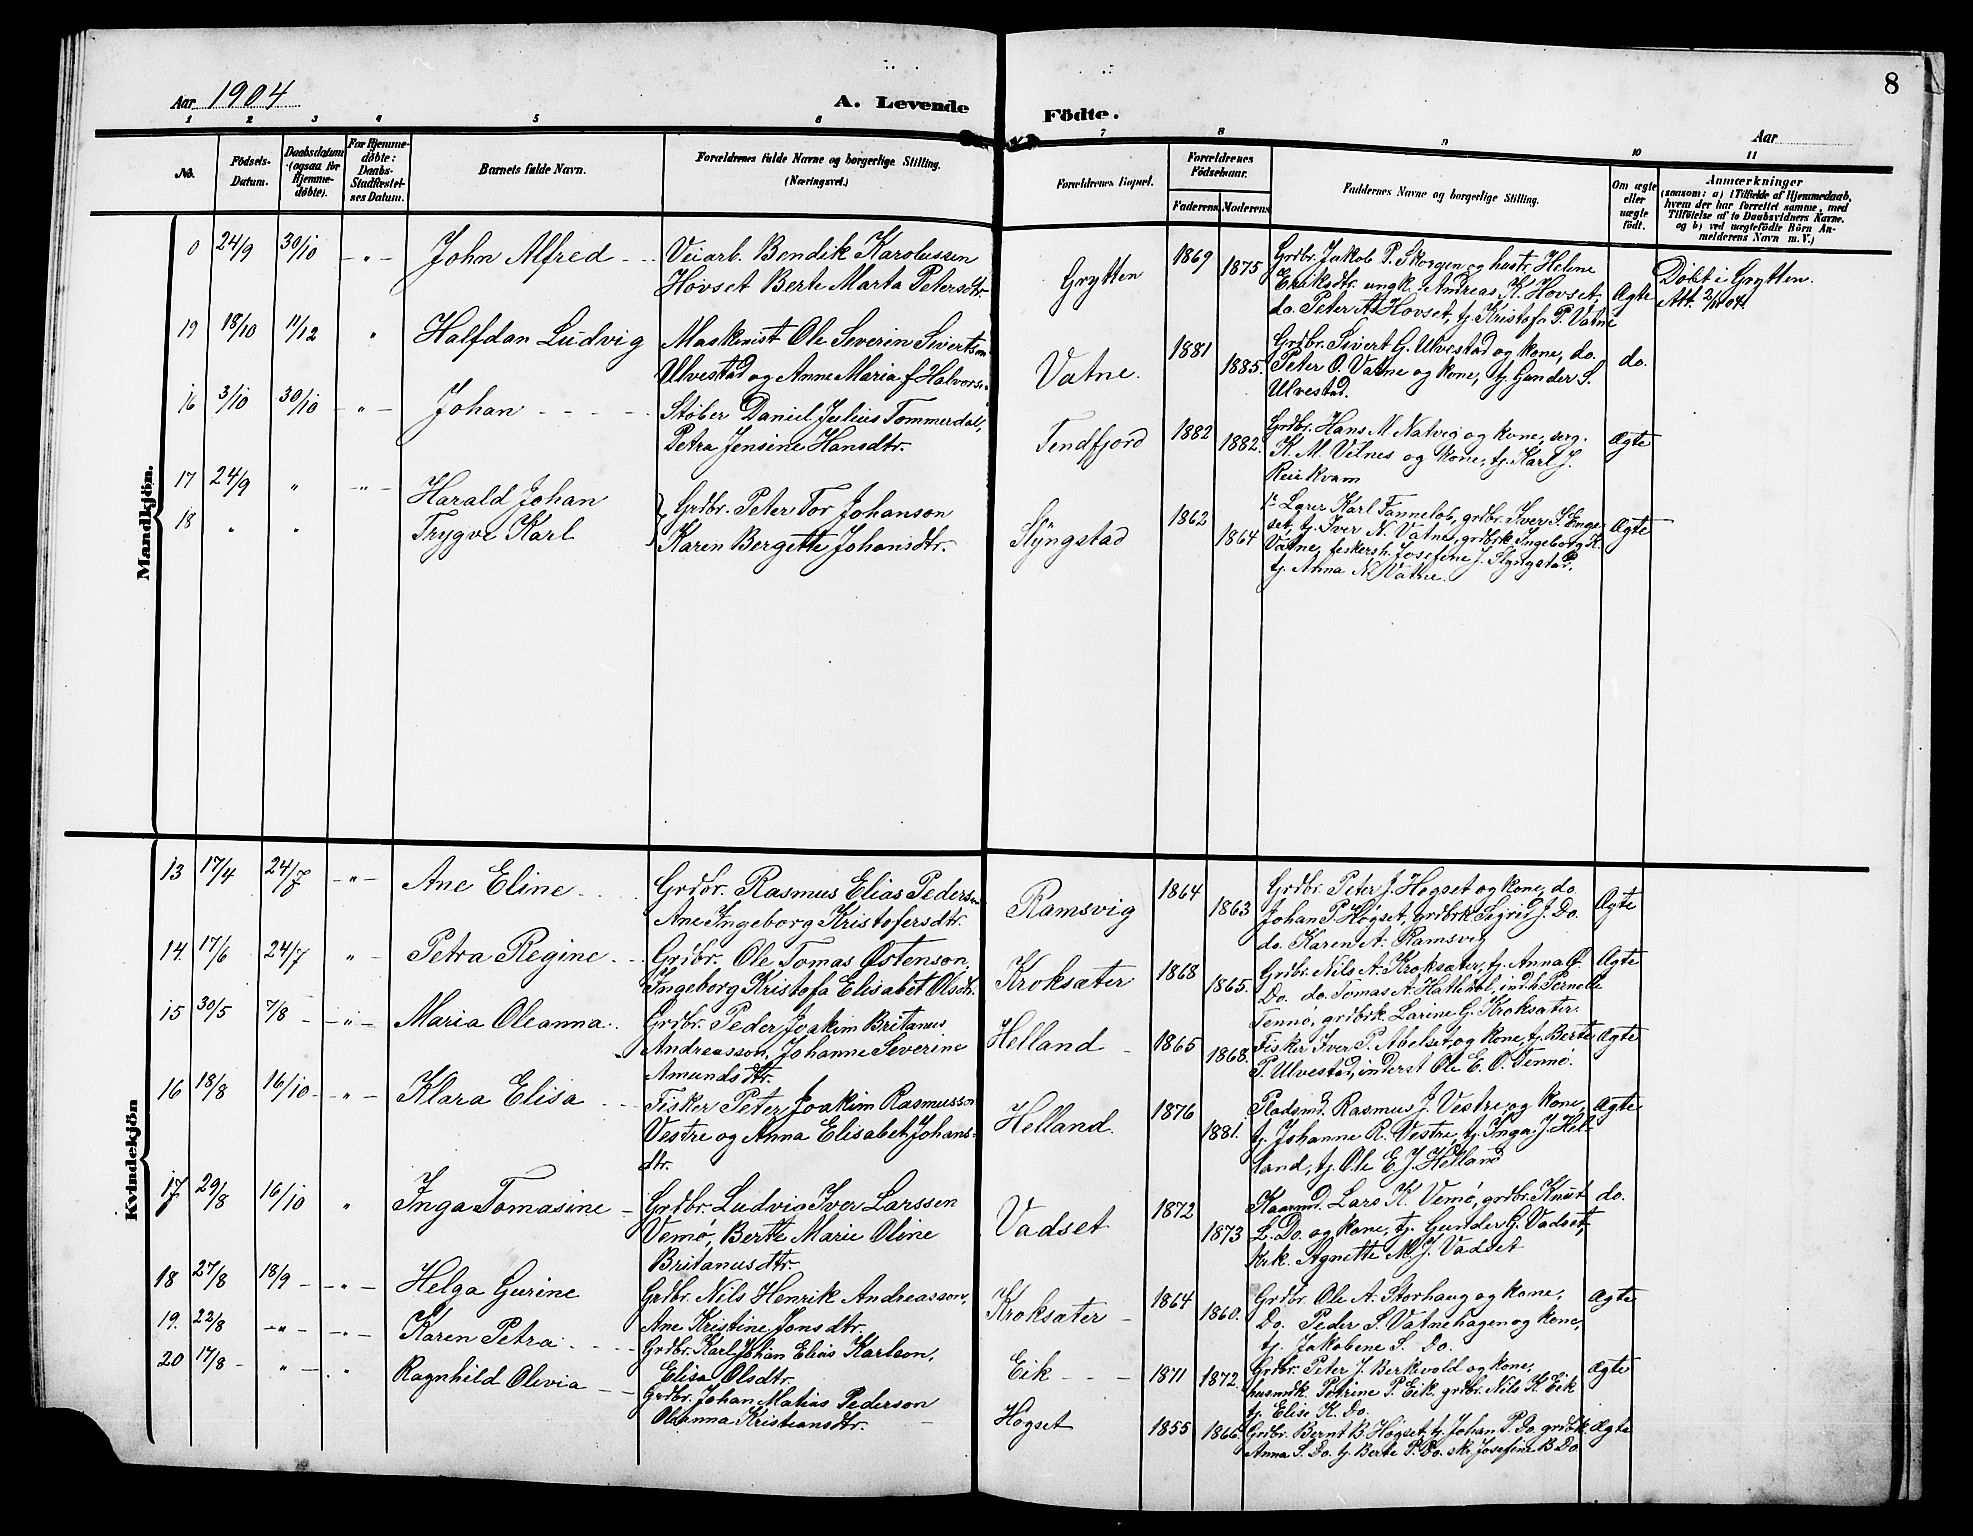 8
Aar 1904
A. Levende
Födte.
Aar
1 2 3 4 5 6 7 8 9 10 11
No.
Födsels-
Datum.
Daabsdatum
(ogsaa for
Hjemme-
døbte).
For Hjemme-
døbte:
Daabs-
Stadfæstel-
ses Datum.
Barnets fulde Navn.
Forældrenes fulde Navne og borgerlige Stilling.
(Næringsvei.)
Forældrenes Bopæl.
Forældrenes
Födselsaar.
Faderens Moderens
Faddernes Navne og borgerlige Stilling.
Om ægte
eller
uægte
født.
Anmærkninger
(saasom: a) i Tilfælde af Hjemmedaab,
hvem der har forrettet samme, med
Tilföielse af to Daabsvidners Navne,
og b) ved uægtefödte Börn An-
melderens Navn m. V.)
Mandkjön.
0 24/9 30/10 - " - John Alfred
Veiarb. Bendik Karolussen
Hovset Berte Marta Petersdtr.
Grytten
1869 1875
Grdbr. Jakob P. Skorgen og hustr. Helene
Eriksdtr. ungk. Andreas K. Hovset,
do. Peter A. Hovset, tj. Kristofa P. Vatne
Ægte
Döbt i Grytten.
Att. 2/11 04.
19 18/10 11/12 " Halfdan Ludvig
Maskinist Ole Severin Sivertsen
Ulvestad og Anne Maria f Halvorsen
Vatne.
1881 1885.
Grdbr. Sivert G. Ulvestad og kone, do.
Peter O. Vatne og kone, tj. Gunder S.
Ulvestad.
do.
16 3/10 30/10 - " - Johan
Støber Daniel Julius Tommerdal,
Petra Jensine Hansdtr.
Tendfjord
1882 1882.
Grdbr. Hans M Natvig og kone, serg.
K. M. Velnes og kone, tj. Karl J.
Reirkvam
Ægte
17 24/9 " - " - Harald Johan
18 " " Trygve Karl
Grdbr. Peter Tor Johanson
Karen Bergette Johansdtr.
Slyngstad
1862 1864
Karl Fanneløb, grdbr. Iver S. Enge-
set, tj. Iver N. Vatne, grdbrk. Ingeborg K.
Vatne, fiskersh. Josefine J. Slyngstad,
tj. Anna N. Vatne.
Ægte
Kvindekjön
13 17/4 24/7 - " - Ane Eline
Grdbr. Rasmus Elias Pederson
Ane Ingeborg Kristofersdtr.
Ramsvig
1864 1863
Grdbr. Peter J. Høgset og kone, do.
Johan P. Høgset, grdbrk. Sigrid J. Do.
do. Karen A. Ramsvig
Ægte
14. 17/6 24/7 " Petra Regine
Grdbr. Ole Tomas Østenson,
Ingeborg Kristofa Elisabet Olsdtr.
Kroksæter
1868 1865.
Grdbr. Nils A. Kroksæter, tj. Anna O.
Do. do. Tomas A. Hathol, indh. Pernelle
Tennø, grdbrk. Larine G. Kroksæter.
Ægte
15 30/5 7/8 - " - Maria Oleanna
Grdbr. Peder Joakim Britanus
Andreasson, Johanne Severine
Amundsdtr.
Helland
1865 1868.
Fisker Iver P. Abelset og kone, tj. Berte
P. Ulvestad, inderst Ole E. O. Tennø.
Ægte
16 18/8 16/10 - " - Klara Elisa
Fisker Peter Joakim Rasmusson
Vestre og Anna Elisabet Johans-
dtr.
Helland.
1876 1881.
Pladsmd. Rasmus J. Vestre og kone,
tj. Johanne R. Vestre, tj. Inga J. Hel-
land, tj. Ole E. J. Helland
Ægte
17 29/8 16/10 " Inga Tomasine
Grdbr. Ludvig Iver Larssen
Vemø, Berte Marie Oline
Britanusdtr.
Vadset
1872 1873
Kaarmd. Lars K. Vemø, grdbr. Knut
L. Do. og kone, tj. Gunder G. Vadset,
Agnette M. J. Vadset
do.
18 27/8 18/9 - " - Helga Gurine
Grdbr. Nils Henrik Andreasson,
Ane Kristine Jonsdtr.
Kroksæter
1864 1860.
Grdbr. Ole A. Storhaug og kone,
Do. Peder S. Vatnehagen og kone,
tj. Jakobene S. Do.
Ægte
19. 22/8 - " - - " - Karen Petra
Grdbr. Karl Johan Elias Karlson,
Elisa Olsdtr.
Eik
1871 1872.
Grdbr. Peter J. Berkvold og kone,
husmdk. Petrine P. Eik, grdbr. Nils K. Eik
tj. Elise K. Do.
Ægte
20 17/8 - " - " Ragnhild Olivia
Grdbr. Johan Matias Pederson
Oleanna Kristiansdtr.
Høgset
1855 1866
Grdbr. Bernt B. Høgset, tj. Johan P. Do. grdbrk.
Anna S. Do. tj. Berte P. Do. sk. Josefine B. Do
Ægte